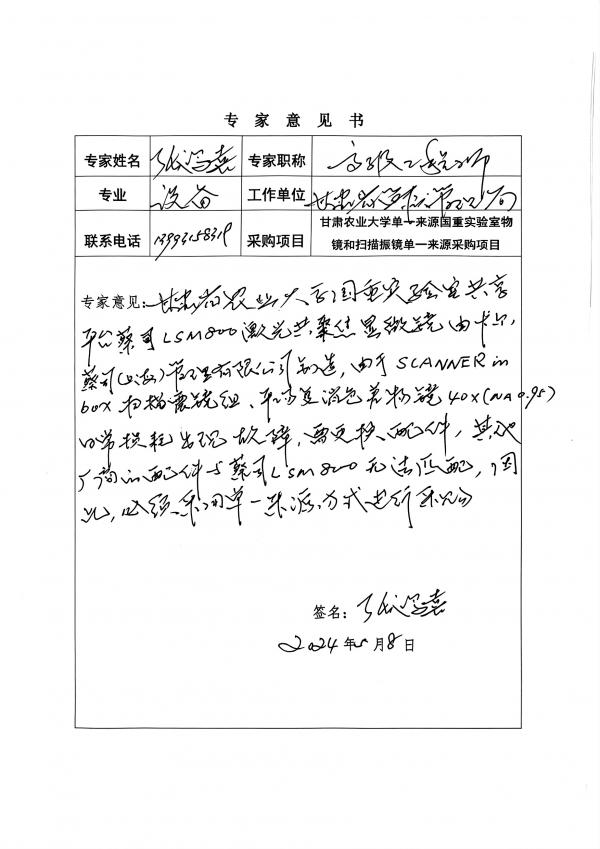 专家意见书
专家姓名 张 专家职称 高级工程师
专业 设备 工作单位 甘肃省 管理局
联系电话 13993158319 采购项目 甘肃农业大学单一来源国重实验室物
镜和扫描振镜单一来源采购项目
专家意见:甘肃省农业大学国重实验室共享
平台蔡司LSM800激光共聚焦显微镜由卡尔
蔡司(上海)管理有限公司制造,由于SCANNER in
box扫描震镜组、平场复消色差物镜40x(NA0.95)
日常损耗出现故障,需更换配件,其他
厂商的配件与蔡司LSM800无法匹配,因
此,必须采用单一来源方式进行采购
签名: 张
2024年 月8日